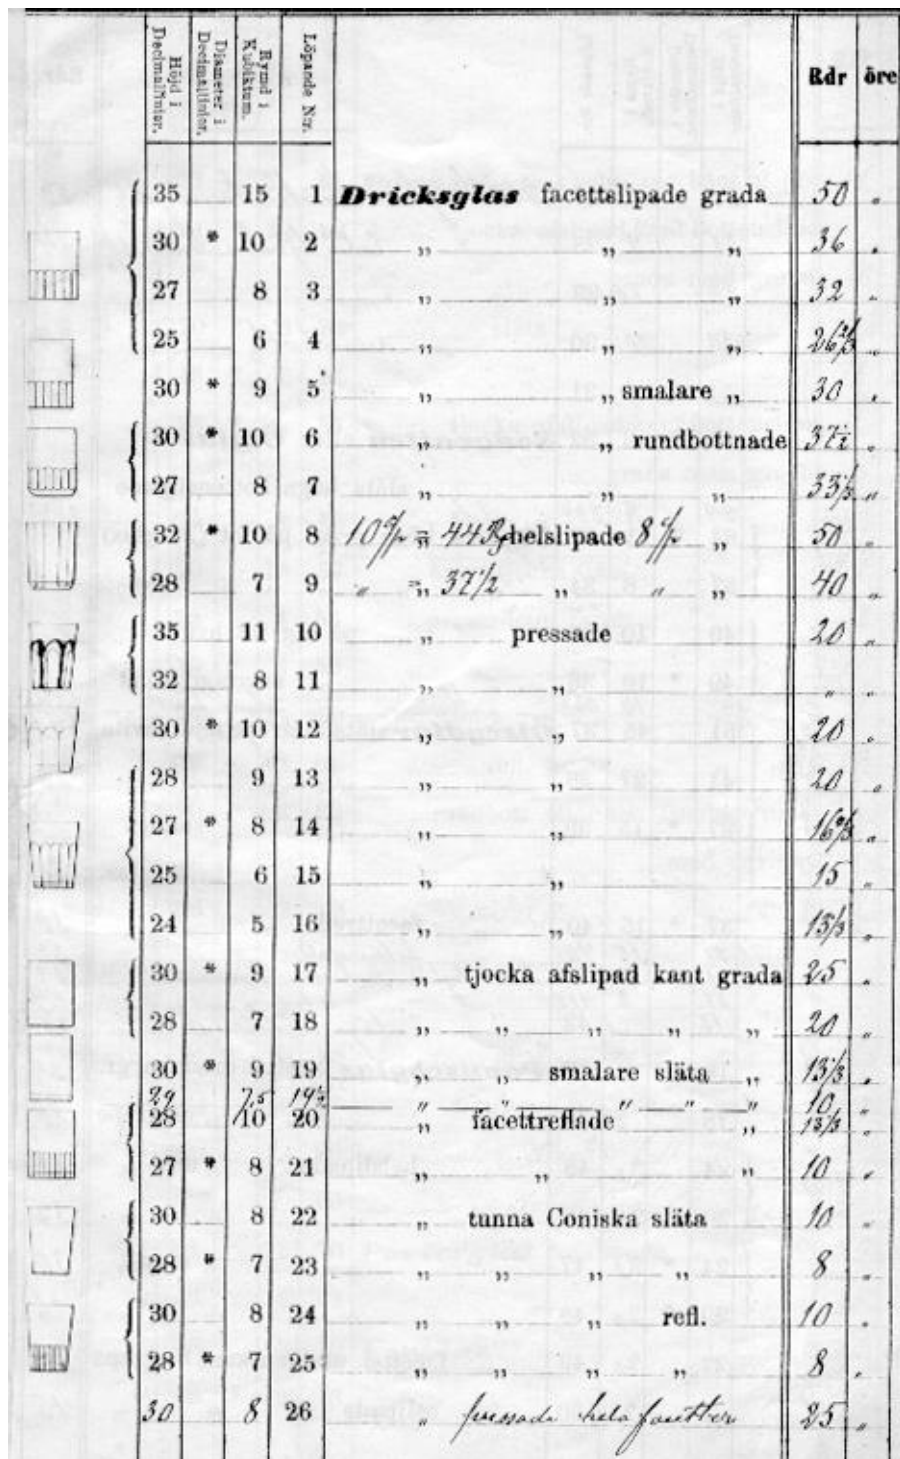 Höjd i Decimallinier. Diameter i Decimallinier. Rymd i Kubiktum. Löpande N:r. Rdr öre
35 15 1 Dricksglas facettslipade grada 50 „
30 * 10 2 „ „ „ 36 „
27 8 3 „ „ „ 32 „
25 6 4 „ „ „ 26 2/3 „
30 * 9 5 „ „ smalare „ 30 „
30 * 10 6 „ „ rundbottnade 37 1/2 „
27 8 7 „ „ „ 33 1/3 „
32 * 10 8 10 = „ 44 helslipade 8 „ 50 „
28 7 9 „ = „ 37 1/2 „ „ „ 40 „
35 11 10 „ pressade 20 „
32 8 11 „ „ „ „
30 * 10 12 „ „ 20 „
28 9 13 „ „ 20 „
27 * 8 14 „ „ 16 2/3 „
25 6 15 „ „ 15 „
24 5 16 „ „ 13 1/3 „
30 * 9 17 „ tjocka afslipad kant grada 25 „
28 7 18 „ „ „ „ „ 20 „
30 * 9 19 „ „ smalare släta „ 13 1/3 „
29 7,5 19 1/2 „ „ „ „ „ 10 „
28 10 20 „ facettreflade „ 13 1/3 „
27 * 8 21 „ „ „ 10 „
30 8 22 „ tunna Coniska släta 10 „
28 * 7 23 „ „ „ „ 8 „
30 8 24 „ „ „ refl. 10 „
28 * 7 25 „ „ „ „ 8 „
30 8 26 „ pressade hela facetter 25 „